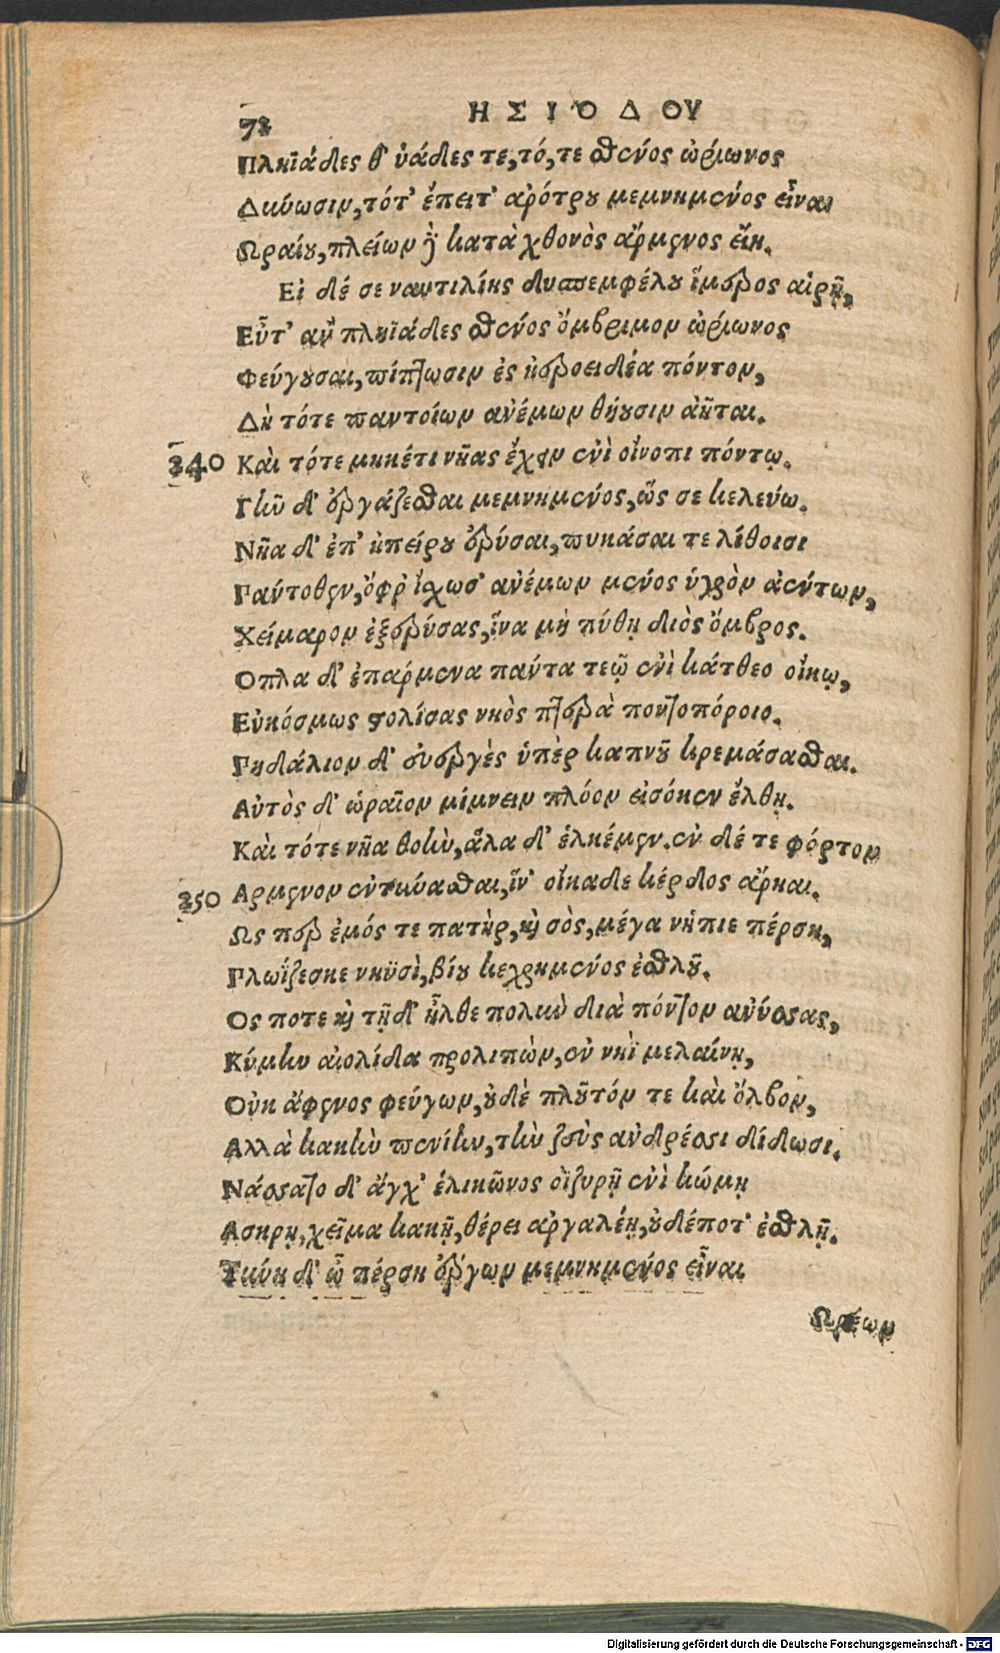 72
ΗΣΙΟΔΟΥ
Πληϊάδες θ' ὑάδες τε, τό, τε σθένος ὠρίωνος
Δύνωσιν, τότ' ἔπειτ' ἀρότρου μεμνημένος εἶναι
Ωραίου, πλείων δὲ κατὰ χθονὸς ἄρμενος εἴη.
Εἰ δέ σε ναυτιλίης δυσπεμφέλου ἵμερος αἱρῇ,
Εὖτ' ἂν πληϊάδες σθένος ὄμβριμον ὠρίωνος
Φεύγουσαι, πίπτωσιν ἐς ἠεροειδέα πόντον,
Δὴ τότε παντοίων ἀνέμων θύουσιν ἀῆται.
240
Καὶ τότε μηκέτι νῆας ἔχειν ἐνὶ οἴνοπι πόντῳ.
Γῆν δ' ἐργάζεσθαι μεμνημένος, ὥς σε κελεύω.
Νῆα δ' ἐπ' ἠπείρου ἐρύσαι, πυκάσαι τε λίθοισι
Γαύτοθεν, ὄφρ' ἴσχωσ' ἀνέμων μένος ὑγρὸν ἀέντων,
Χείμαρον ἐξερύσας, ἵνα μὴ πύθῃ διὸς ὄμβρος.
Οπλα δ' ἐπάρμενα πάντα τεῷ ἐνὶ κάτθεο οἴκῳ,
Εὐκόσμως στολίσας νηὸς πτερὰ ποντοπόροιο.
Γηδάλιον δ' εὐεργὲς ὑπὲρ καπνοῦ κρεμάσασθαι.
Αὐτὸς δ' ὡραῖον μίμνειν πλόον εἰσόκεν ἔλθῃ.
Καὶ τότε νῆα θοὴν, ἅλα δ' ἑλκέμεν. ἐν δέ τε φόρτον
250
Αρμενον ἐντύνασθαι, ἵν' οἴκαδε κέρδος ἄρηαι.
Ως περ ἐμός τε πατὴρ, καὶ σὸς, μέγα νήπιε πέρση,
Γλωΐζεσκε νηϋσὶ, βίου κεχρημένος ἐσθλοῦ.
Ος ποτε καὶ τῇδ' ἦλθε πολὺν διὰ πόντον ἀνύσσας,
Κύμην αἰολίδα προλιπὼν, ἐν νηῒ μελαίνῃ,
Οὐκ ἄφενος φεύγων, οὐδὲ πλοῦτόν τε καὶ ὄλβον,
Αλλὰ κακὴν πενίην, τὴν ζεὺς ἄνδρεσσι δίδωσι.
Νάσσατο δ' ἄγχ' ἑλικῶνος ὀϊζυρῇ ἐνὶ κώμῃ
Ασκρῃ, χεῖμα κακῇ, θέρει ἀργαλέῃ, οὐδέποτ' ἐσθλῇ.
Τύνη δ' ὦ πέρση ἔργων μεμνημένος εἶναι
Ωρέων
Digitalisierung gefördert durch die Deutsche Forschungsgemeinschaft - DFG